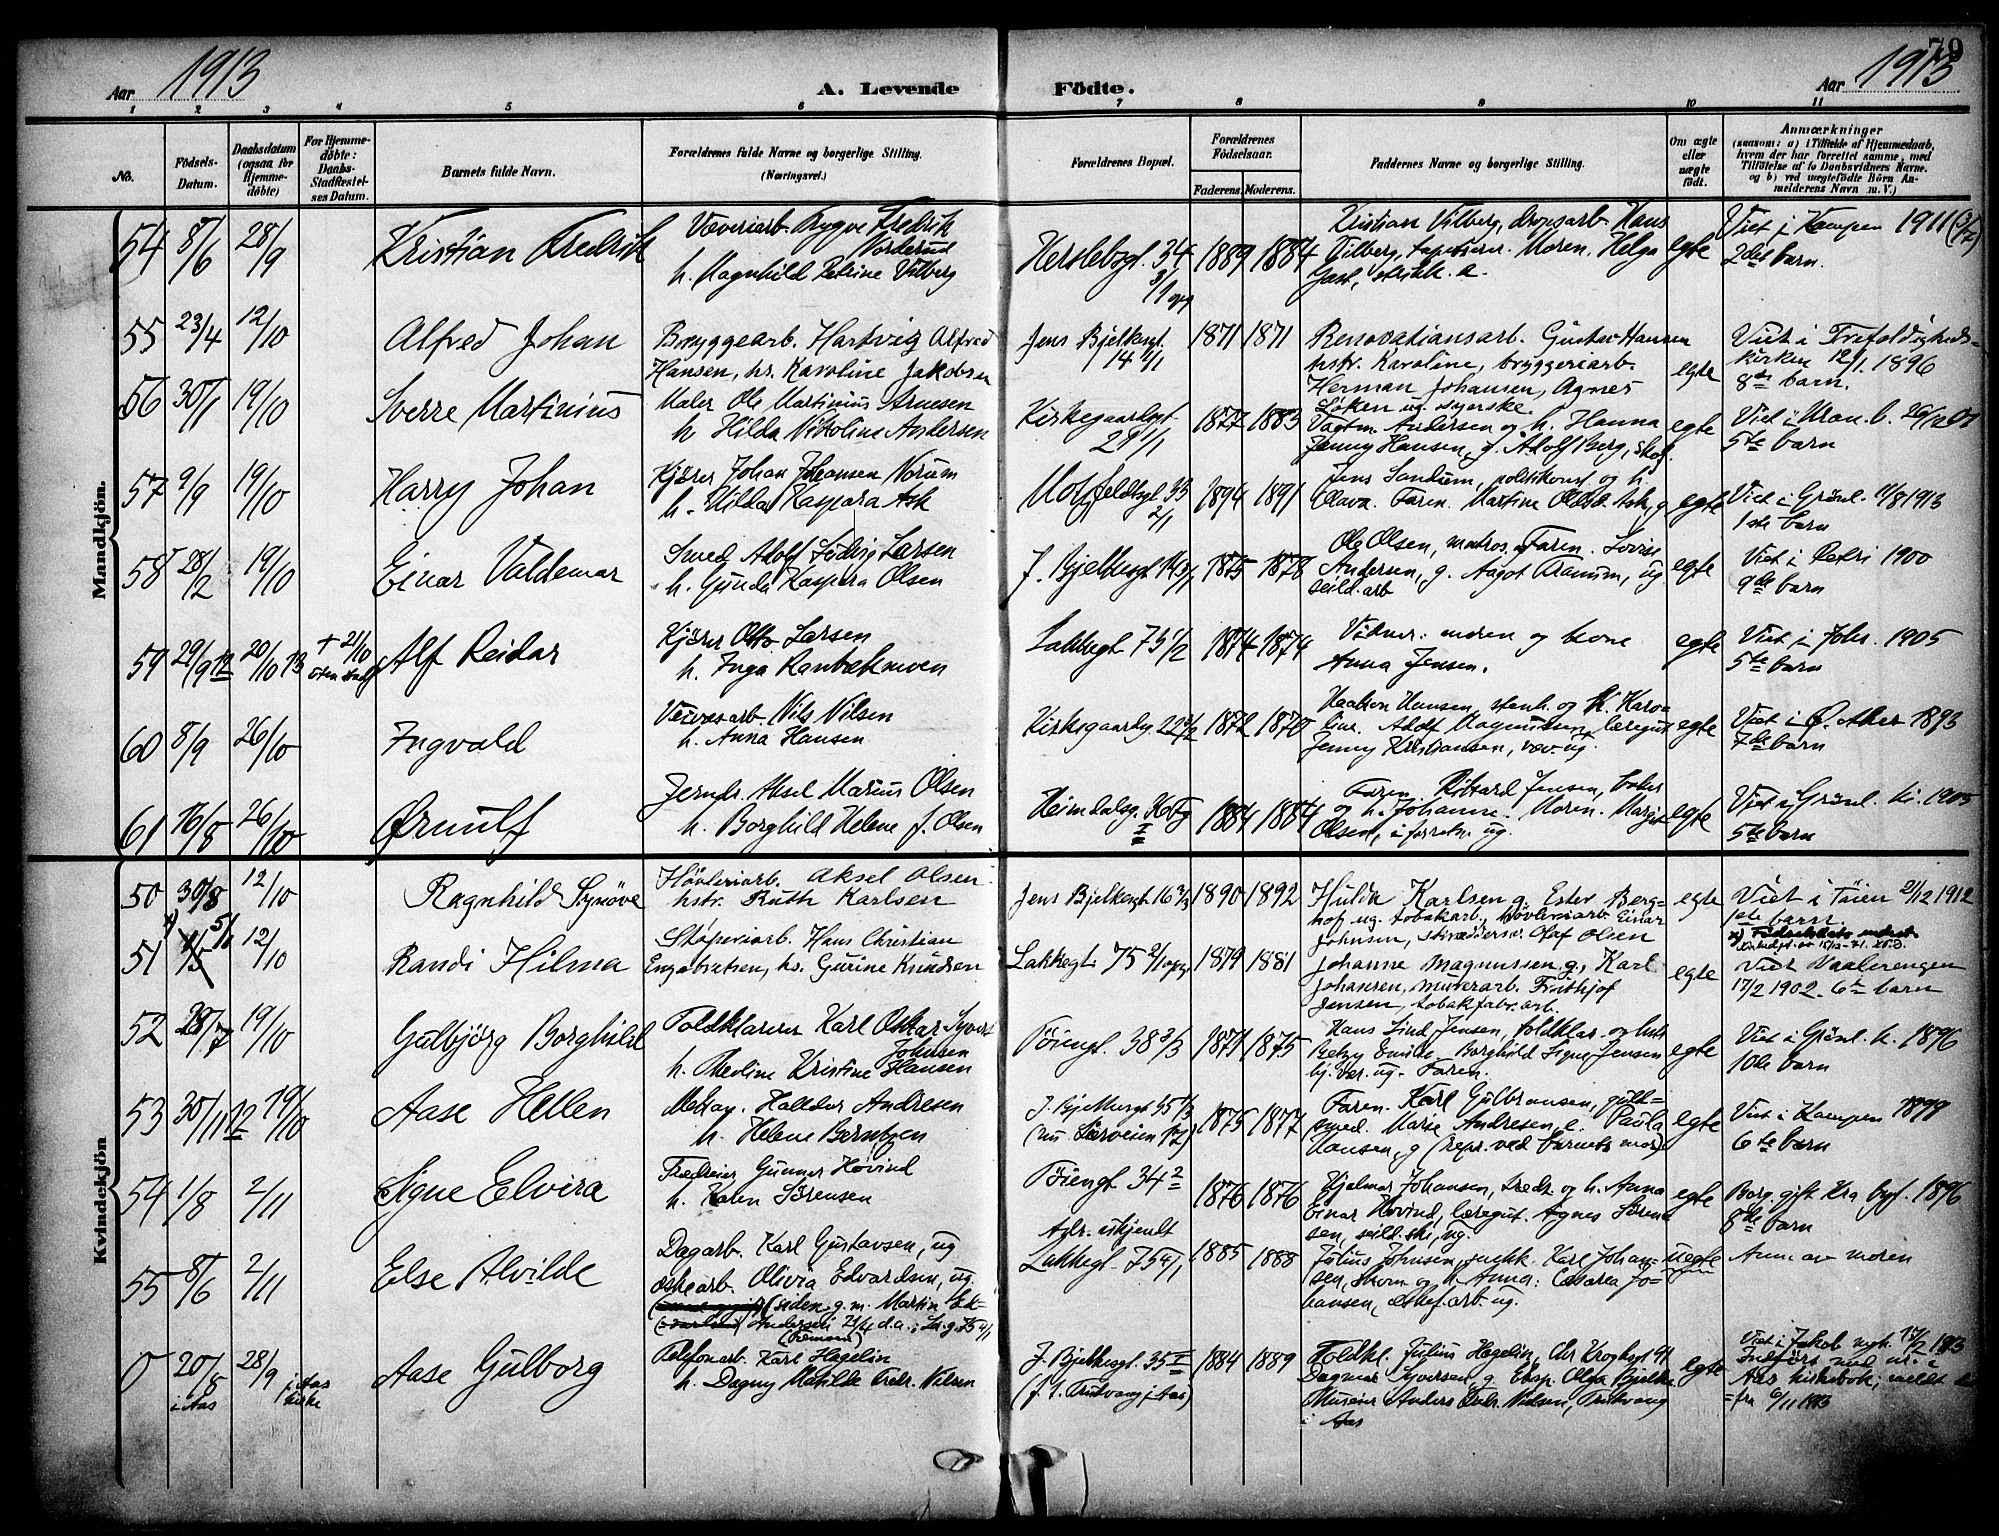 1913
79
Aar
A. Levende
Födte.
Aar 1913
1 2 3 4 5 6 7 8 9 10 11
No.
Födsels-
Datum.
Daabsdatum
(ogsaa for
Hjemme-
döbte)
For Hjemme-
döbte:
Daabs-
Stadfæstel-
ses Datum.
Barnets fulde Navn.
Forældrenes fulde Navne og borgerlige Stilling.
(Næringsvei.)
Forældrenes Bopæl.
Forældrenes
Födselsaar.
Faderens. Moderens.
Faddernes Navne og borgerlige Stilling.
Om ægte
eller
uægte
födt.
Anmærkninger
(saasom: a) i Tilfælde af Hjemmedaab,
hvem der har forrettet samme, med
Tilföielse af to Daabsvidners Navne.
og b) ved uægtefödte Börn An-
melderens Navn m. V.)
Mandkjön.
54 8/6 28/9 Kristian Fredrik
Væveriarb. Trygve Fredrik
Norderud
h. Magnhild Petrine Vilberg
Herslebsgt. 34
3/1 opg
1889 1884
Kristian Vilberg, dropsarb. Hans
Vilberg, tapetserer. Moren. Helga
egte
Viet i Kampen 1911
2det barn.
55 23/4 12/10 Alfred Johan
Bryggearb. Hartvig Alfred
Hansen, hs. Karoline Jakobsen
Jens Bjelkesgt.
14 1/1
1871 1871
Renovationsarb. Gustav Hansen
hstr. Karoline, bryggeriarb.
Herman Johansen, Agnes
Löken ug. syerske.
egte
Viet i Trefoldigheds-
kirken 12/1. 1896
8de barn.
56 30/1 19/10 Sverre Martinius
Maler Ole Martinius Arnesen
h Hilda Nikoline Andersen
Kirkegaardsgt
29 1/1
1877 1883
Vagtm. Andersen og h. Hanna
Jenny Hansen, g. Adolf Berg, skog.
egte
5te barn
57 9/9 19/10 Harry Johan
Kjörer Johan Johansen Norum
h. Hilda Kaspara Ask
Motzfeldtsgt 35
2/1
1894 1891
Jens Sandum, politikonst og h.
Olava. Faren. Martine
egte
Viet i Grönl. 11/8 1913
1ste barn
58 28/2 19/10 Einar Valdemar
Smed Adolf Ludvig Larsen
h. Gunda Kaspara Olsen
J. Bjelkesgt 14 3/1
1875 1878
Ole Olsen, matros. Faren. Lovise
Andersen, g. Aagot Aranum, ug
seild.arb
egte
Viet i Petri 1900
9de barn
59 29/9 12 20/10 13 + 21/10
Alf Reidar
Kjörer Otto Larsen
h. Inga Ranbækmoen
Lakkegt 75 1/2
1874 1874
Vidner: moren og kone
Anna Jensen.
egte
Viet i Joh. 1905
5te barn
60 8/9 26/10 Ingvald
Veivæsarb. Nils Nilsen
h. Anna Hansen
Kirkegaardsg 22 2/2
1872 1870
Haakon Hansen, stenh. og h. Karo-
line. Adolf Magnussen, læregut
Jenny Kristiansen, væv. ug.
egte
Viet i Ø. Aker 1893
7de barn
61 16/8 26/10 Ørnulf
Jerndr. Aksel Marius Olsen
h. Borghild Helene f. Olsen
Heimdalsg.
I
1884 1884
Faren. Rikard Jensen,
og h. Johanne. Moren. Margit
Olsen, i forretn. ug.
egte
Viet i Grönl. ki. 1905
5te barn
Kvindekjön
50 30/8 12/10 Ragnhild Synöve
Hövleriarb. Aksel Olsen
hstr. Ruth Karlsen
Jens Bjelkesgt 16 3/3
1890 1892
Hulda Karlsen g. Ester Berg-
hof ug. tobakarb., hövleriarb. Einar
Johnsen, Olaf Olsen
egte
Viet i Töien 21/12 1912
1ste barn.
51 5/1 12/10 Randi Hilma
Stöperiarb. Hans Christian
Engebretsen, hs. Gurine Knudsen
Lakkegt 75 2/1 opg
1879 1881
Johanne Magnussen g., Karl
Johansen, murerarb. Frithjof
Jensen, tobakfabr.arb.
egte
Viet Vaalerengen
17/2 1902. 6te barn
52 28/7 19/10 Gulbjörg Borghild
Toldklarerer Karl Oskar Syvert
Johnsen
h. Medine Kristine Hansen
Töiengt. 38 3/3
1871 1875
Hans Lind Jensen, toldklar. og
Betzy Emilie. Borghild Signe Jensen
ug. Faren.
egte
Viet i Grönl. k. 1896
10de barn
53 30/11 12 19/10 Aase Hellen
Mekan. Halldor Andresen
h. Helene Berntzen
J. Bjelkesgt 55 1/3
(nu Sarsveien 17)
1875 1877
Faren. Karl Gulbransen, guld-
smed. Marie Andresen, e. Paula
Hansen, g (repr. ved barnets mor)
egte
Viet i Kampen 1899
6te barn
54 1/8 2/11 Signe Elvira
Trædreier Gunnar Hovind
h. Karen Sörensen
Töiengt 34 2
1876 1876
Hjalmar Johansen, trædr. og h. Anna
Einar Hovind, læregut. Agnes Sören-
sen, ug.
egte
Borg. gift Kra byf. 1896
8de barn
55 8/6 2/11 Else Alvilde
Dagarb. Karl Gustavsen, ug
æskearb. Olivia Edvardsen, ug.
(siden g. m. Martin
Andersen 21/4 d.a.; La.g. 75 4/1
Adr. ukjendt
Lakkegt. 75 4/1
1885 1888
Julius Johnsen, Karl Johan-
sen, skom og h. Anna. Cæsarea Jo-
hansen, ug.
uegte
Anm. av moren
0 20/8 i Aas 28/9 i Aas kirke
Aase Gulborg
Telefonarb. Karl Hagelin
h. Dagny Matilde Fredr. Nilsen
J. Bjelkesgt. 35 I
1884 1889
Toldkl. Julius Hagelin, Chr Kroghsgt 41
Dagmar Syversen g.
Anders Fredr. Nielsen,
i Aas
egte
Viet i Jakob 1913
Indförs med nr. i
Aas kirkebok; meldt
fra 6/11 1913